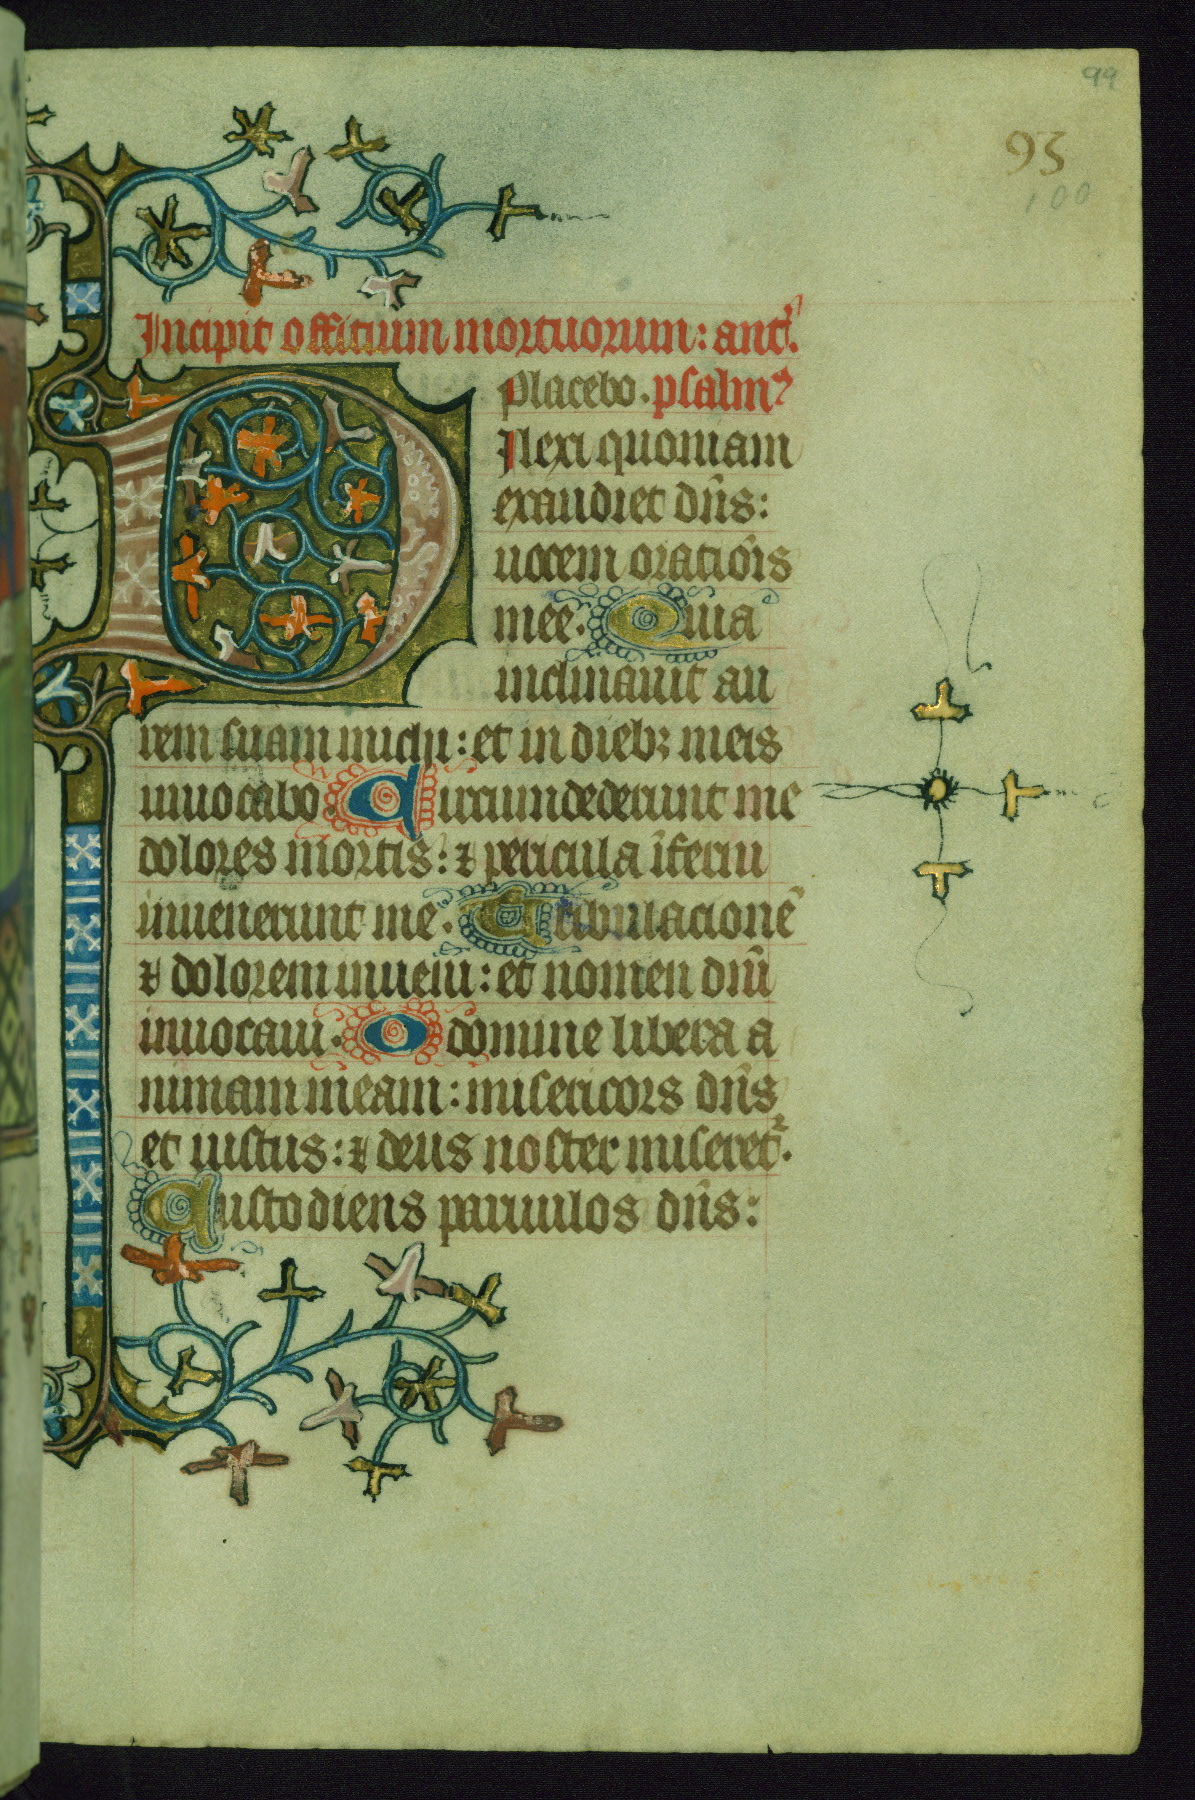 99
93
100
Incipit officium mortuorum: ant.
Placebo. psalm⁹
Dilexi quoniam
exaudiet dn̄s:
uocem oratiōis
mee. Quia
inclinauit au
rem suam michi: et in dieb; meis
inuocabo. Circumdederunt me
dolores mortis: ⁊ pericula īferni
inuenerunt me. Tribulacionē
⁊ dolorem inueni: et nomen dnī
inuocaui. O domine libera a
nimam meam: misericors dn̄s
et iustus: ⁊ deus noster miseret᷑.
Custodiens paruulos dn̄s: